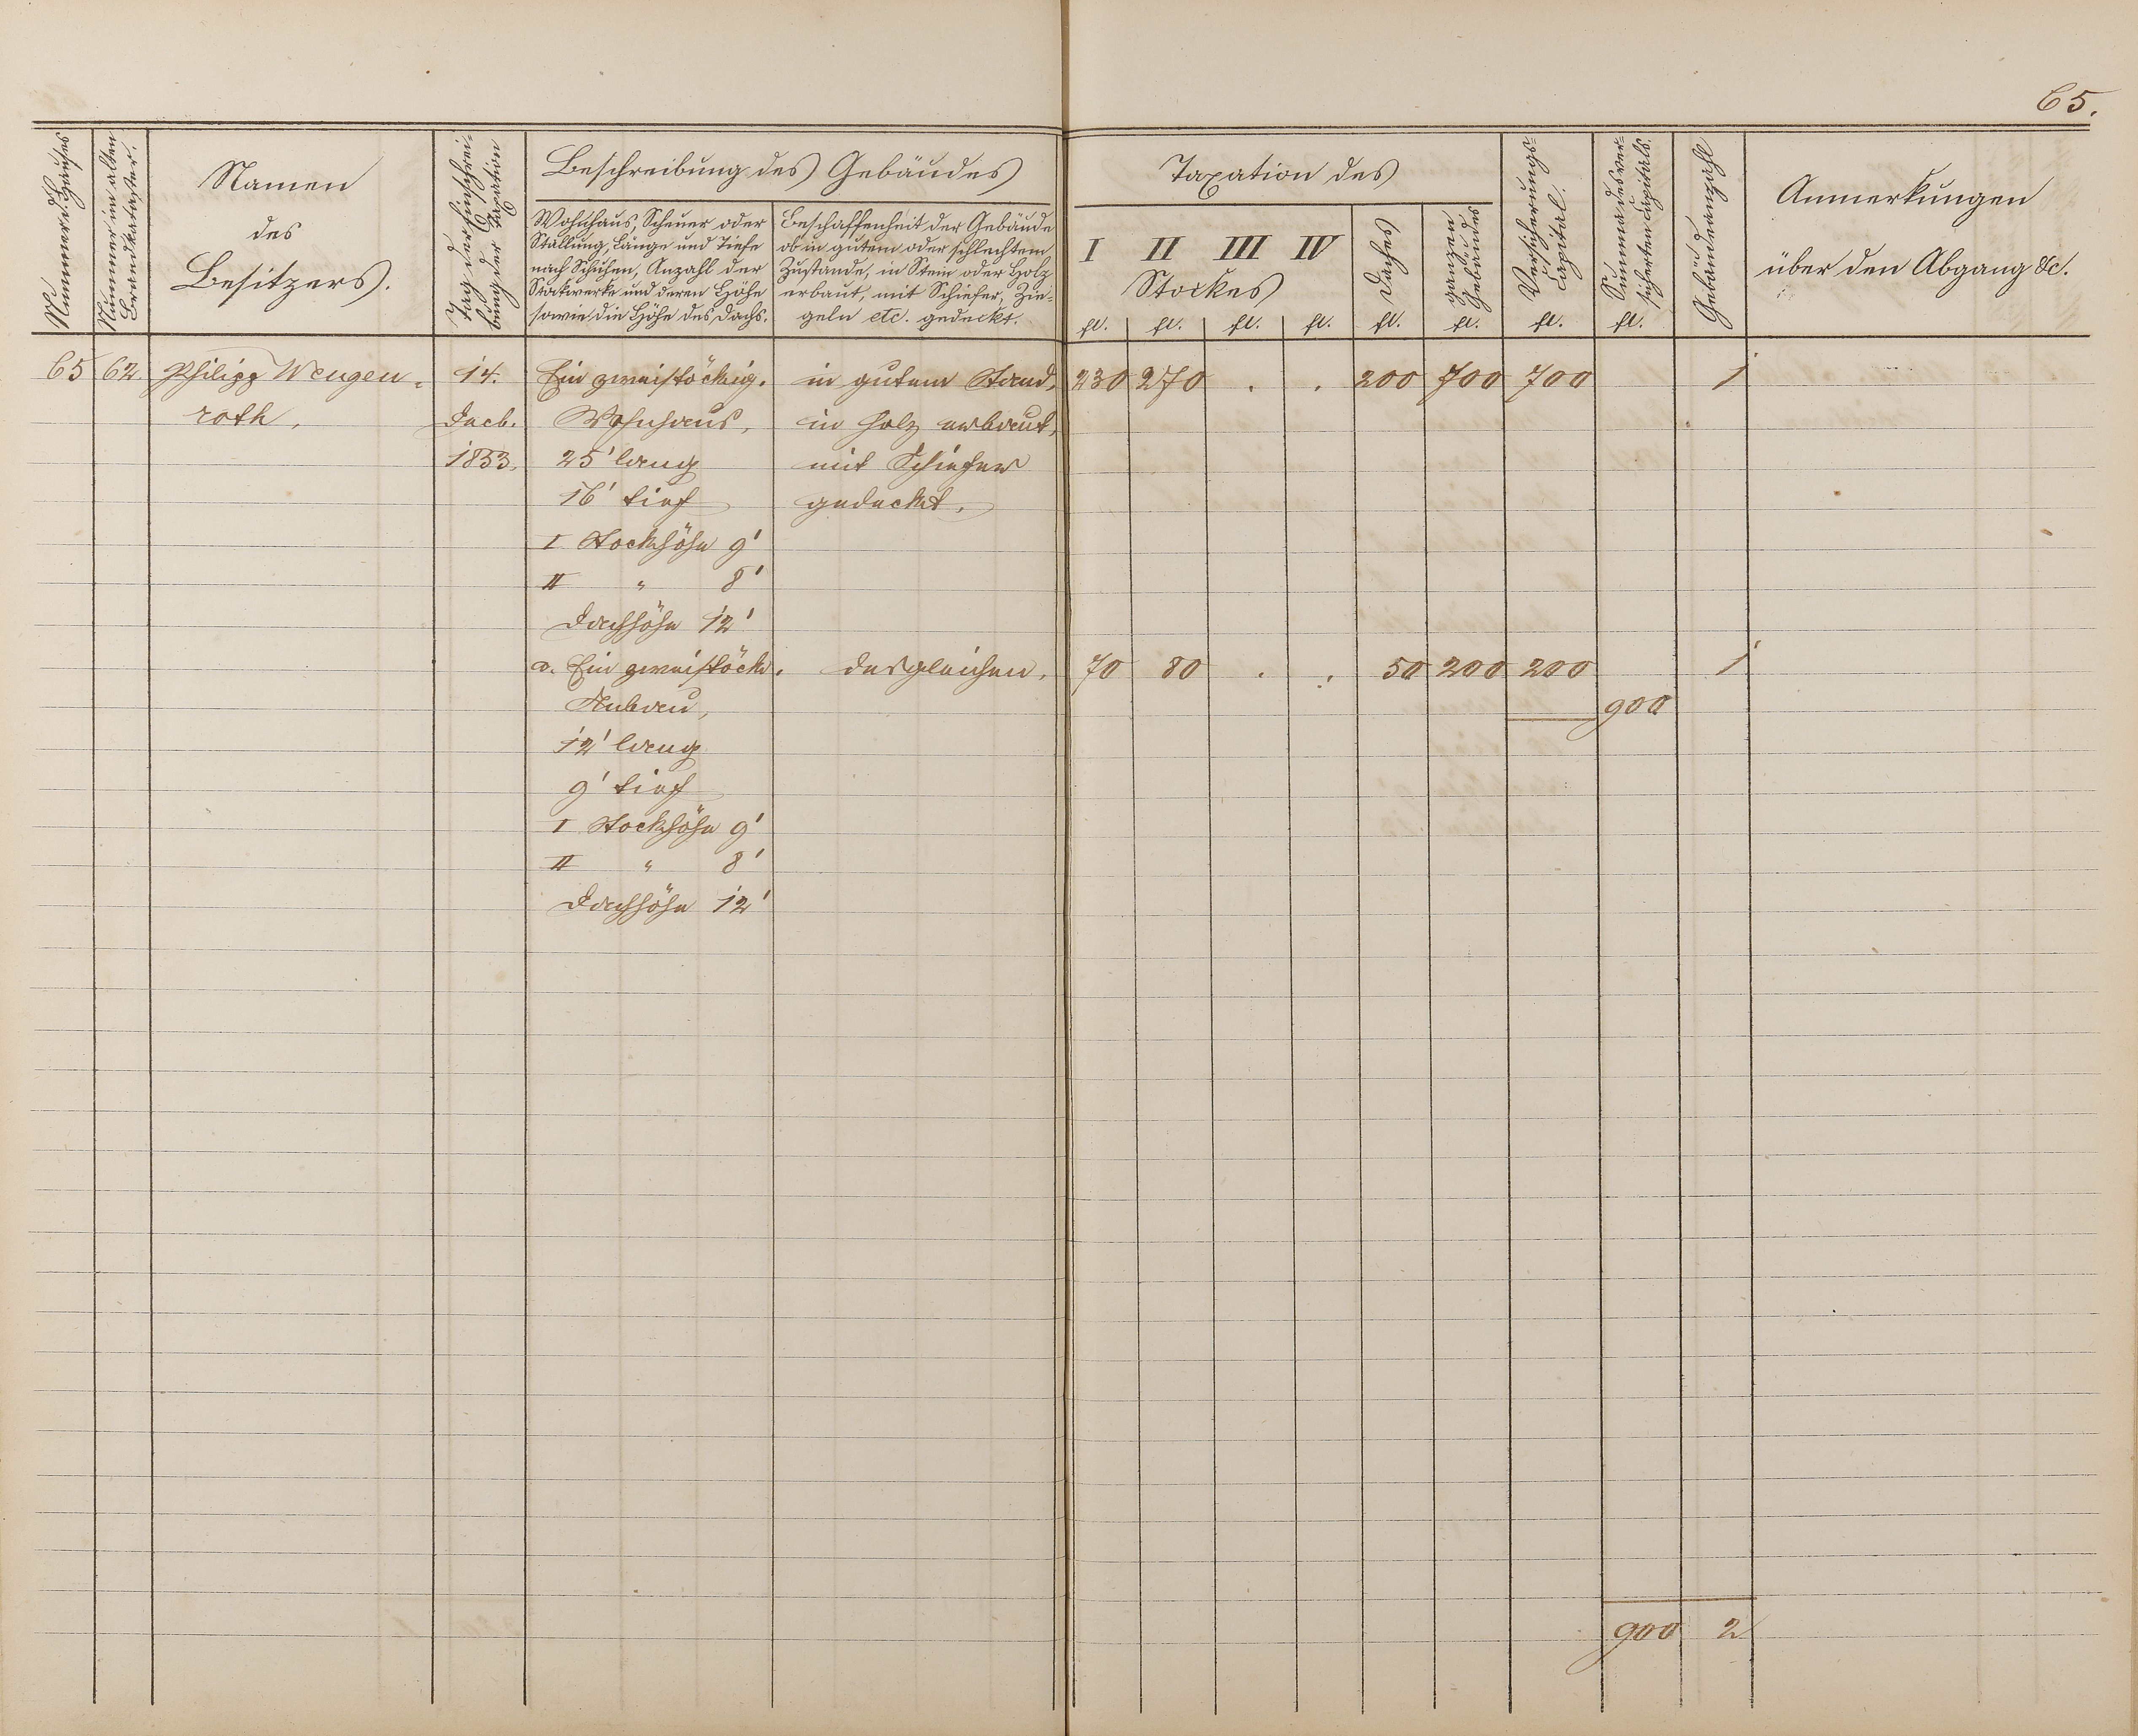 65.
Nummer d. Hauses
Nummer im alten
Brandkataster.
Namen
des
Besitzers.
Tag der Einschrei-
bung der Taxation
Beschreibung des Gebäudes
Wohnhaus, Scheuer oder
Stallung, Länge und Tiefe
nach Schuhen, Anzahl der
Stockwerke und deren Höhe
sowie die Höhe des Dachs.
Beschaffenheit der Gebäude
ob in gutem oder schlechtem
Zustande, in Stein oder Holz
erbaut, mit Schiefer, Zie-
geln etc. gedeckt.
Taxation des
I II III IV
Stockes
Daches
ganzen
Gebäudes
Versicherungs-
Capital.
Summa des ver-
sicherten Capitals.
Gebäudeanzahl
Anmerkungen
über den Abgang &c.
fl. fl. fl. fl. fl. fl. fl. fl.
65 62 Philipp Wengen- 14. Ein zweistöckig. in gutem Stand, 230 270 . . 200 700 700 1
roth. Decb. Wohnhaus, in Holz erbaut,
1853. 25' lang mit Schiefer
16' tief gedeckt.
I Stockhöhe 9'
II " 8'
Dachhöhe 12'
a. Ein zweistöck. desgleichen. 70 80 . . 50 200 200 1
Anbau, 900
12' lang
9' tief
I Stockhöhe 9'
II " 8'
Dachhöhe 12'
900 2